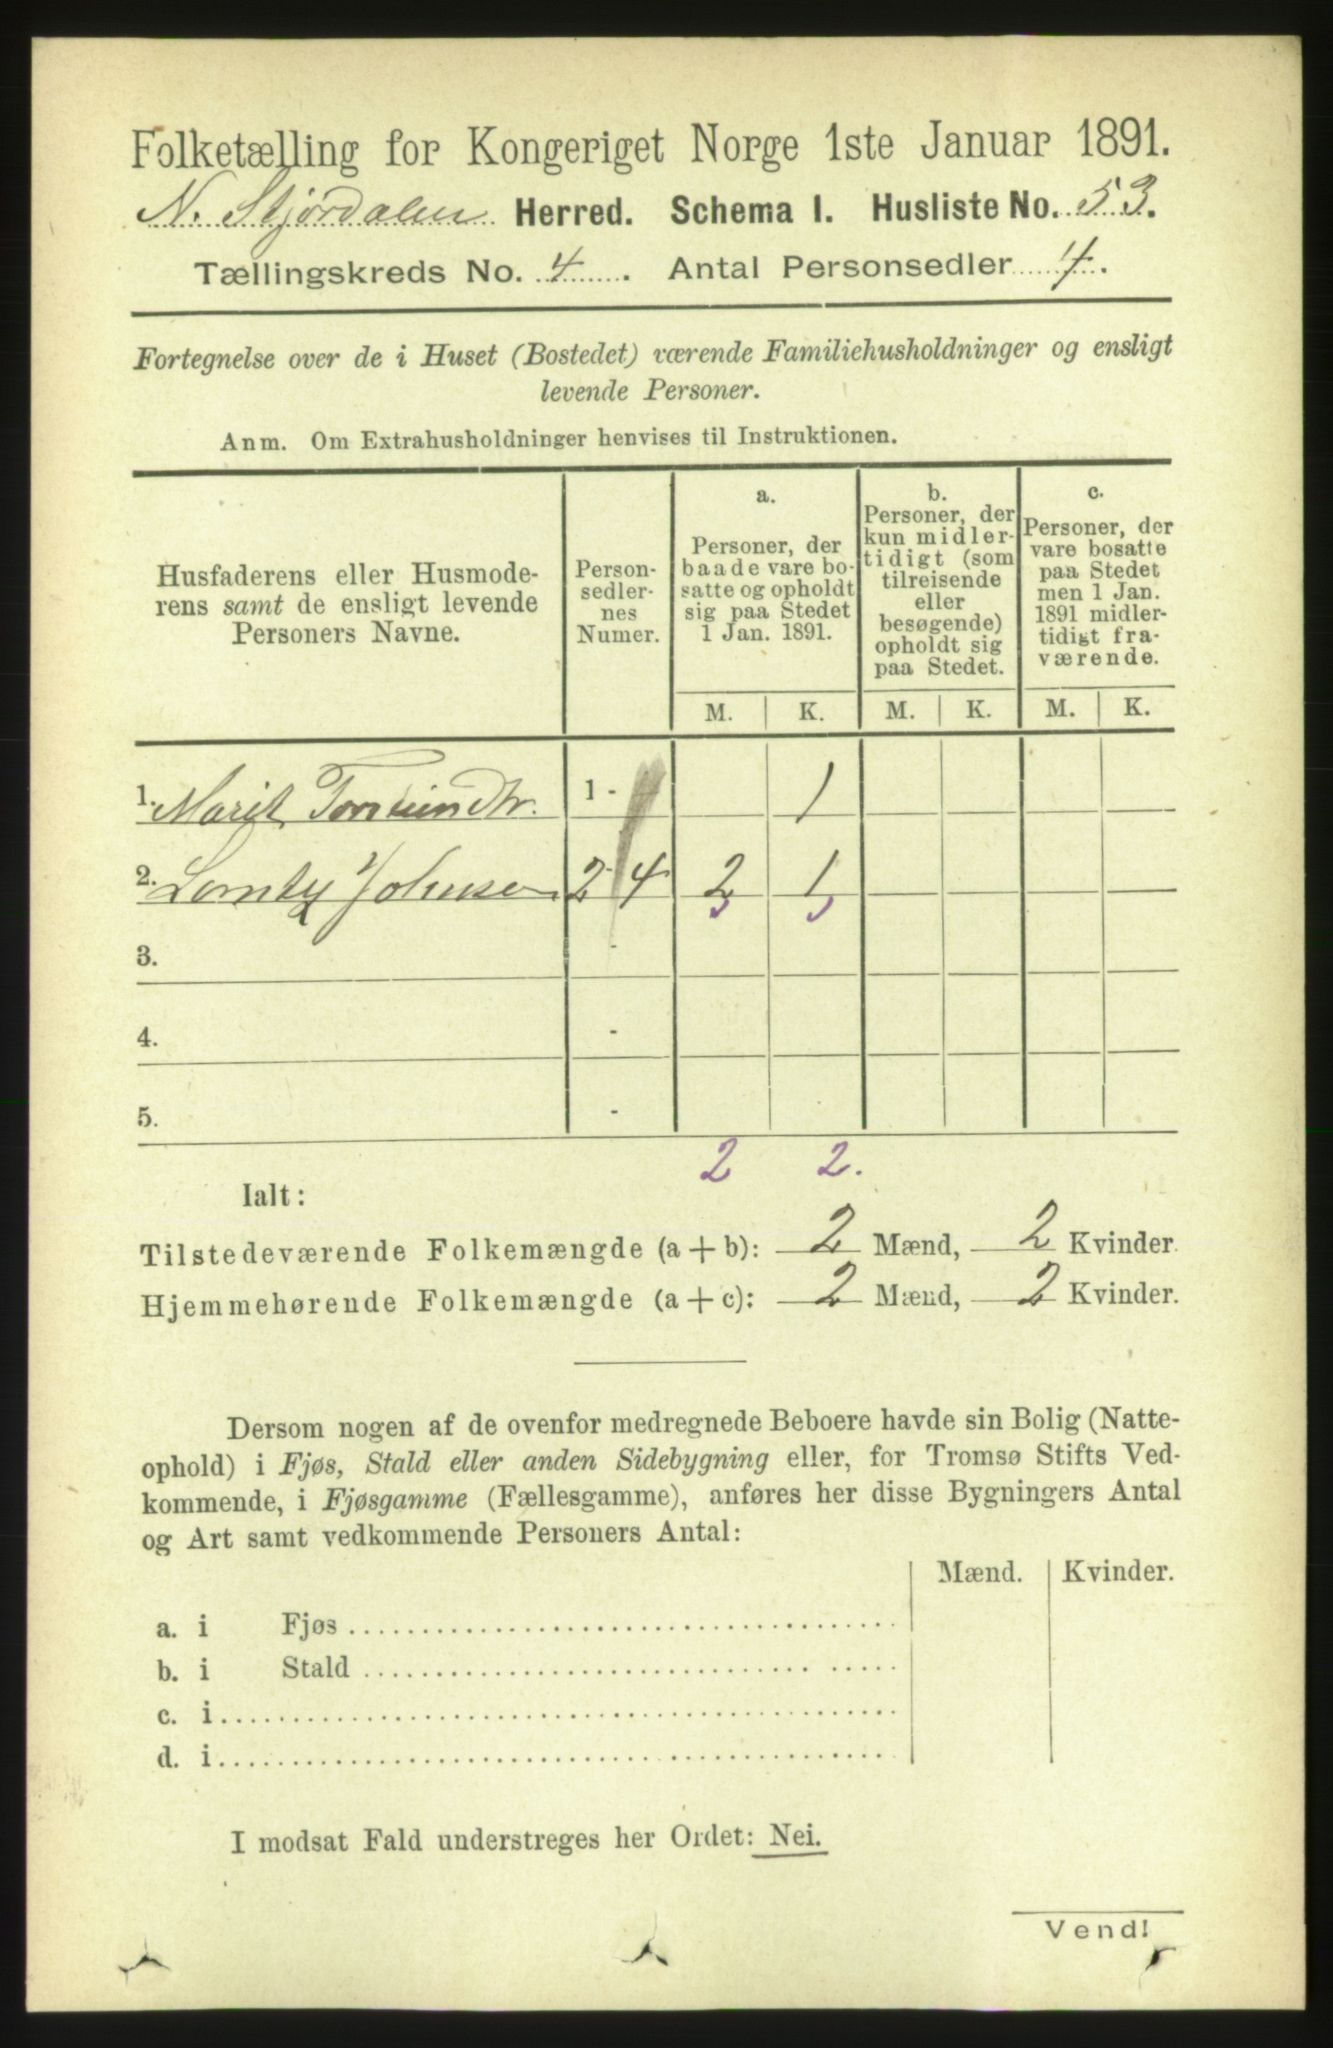 Folketælling for Kongeriget Norge 1ste Januar 1891.
N. Stjørdalen Herred. Schema I. Husliste No. 53.
Tællingskreds No. 4. Antal Personsedler 4.
Fortegnelse over de i Huset (Bostedet) værende Familiehusholdninger og ensligt
levende Personer.
Anm. Om Extrahusholdninger henvises til Instruktionen.
Husfaderens eller Husmode-
rens samt de ensligt levende
Personers Navne.
Person-
sedler-
nes
Numer.
a.
Personer, der
baade vare bo-
satte og opholdt
sig paa Stedet
1 Jan. 1891.
b.
Personer, der
kun midler-
tidigt (som
tilreisende
eller
besøgende)
opholdt sig
paa Stedet.
c.
Personer, der
vare bosatte
paa Stedet
men 1 Jan.
1891 midler-
tidigt fra-
værende.
M. K. M. K. M. K.
1. Marit 1 - 1
2. Johnsen 2 - 4 2 1
3. -
4. -
5. -
2 2.
Ialt:
Tilstedeværende Folkemængde (a + b): 2 Mænd, 2 Kvinder.
Hjemmehørende Folkemængde (a + c): 2 Mænd, 2 Kvinder.
Dersom nogen af de ovenfor medregnede Beboere havde sin Bolig (Natte-
ophold) i Fjøs, Stald eller anden Sidebygning eller, for Tromsø Stifts Ved-
kommende, i Fjøsgamme (Fællesgamme), anføres her disse Bygningers Antal
og Art samt vedkommende Personers Antal:
Mænd. Kvinder.
a. i Fjøs
b. i Stald
c. i
d. i
I modsat Fald understreges her Ordet: Nei.
Vend!